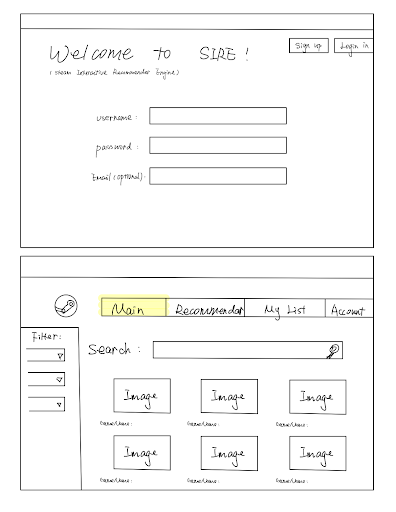 Welcome to SIRE!
Sign up
Login in
(Steam Interactive Recommender Engine)
username:
password:
Email (optional):
Main
Recommendor
My List
Account
Filter:
Search:
Image
Image
Image
GameName:
GameName:
GameName:
Image
Image
Image
GameName:
GameName:
GameName: